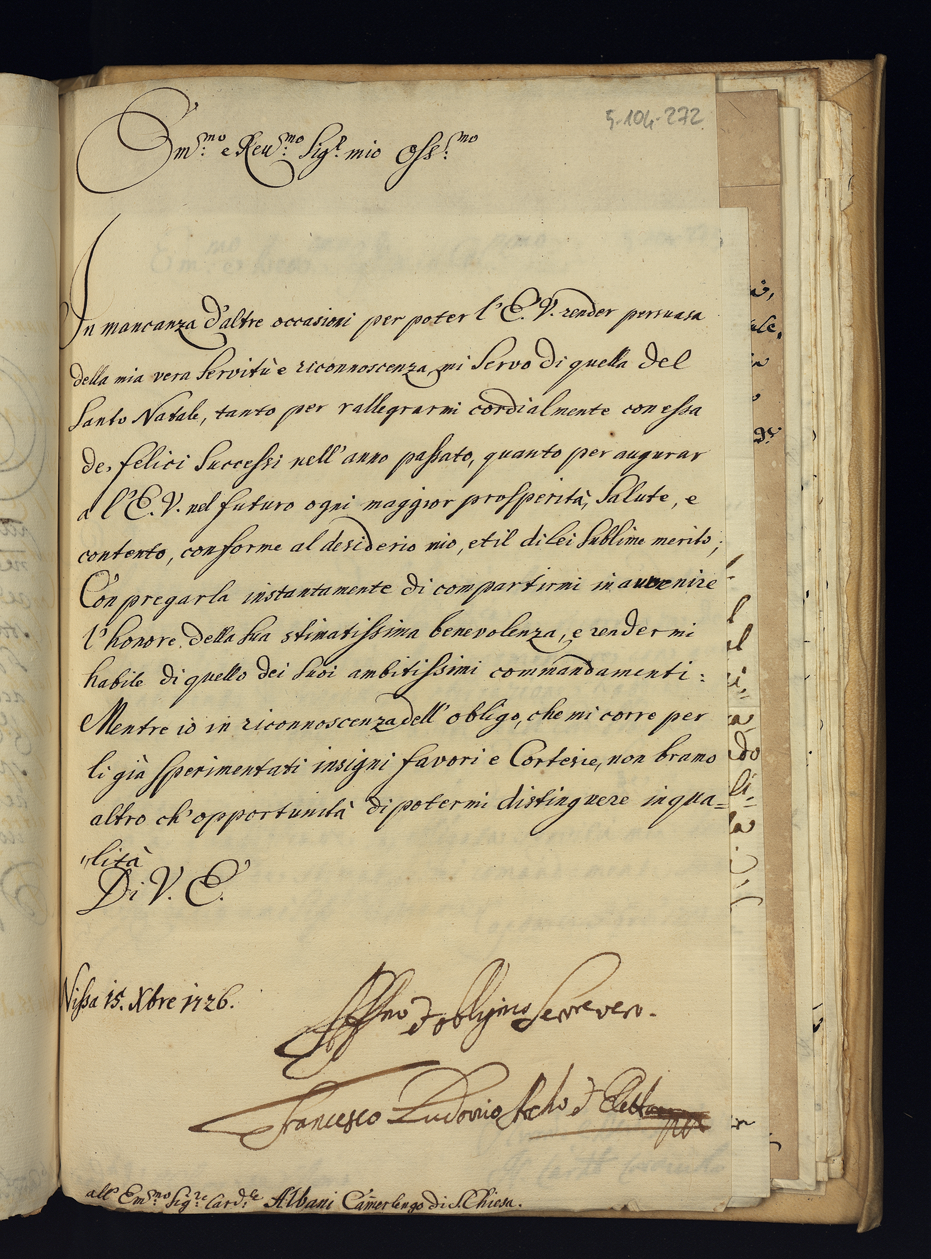 5-104-272
Em.mo e Reu.mo Sig.r mio Oss.mo
In mancanza d'altre occasioni per poter l'E.V. render persuasa
della mia vera Servitù e riconnoscenza, mi Servo di quella del
Santo Natale, tanto per rallegrarmi cordialmente con essa
de, felici Successi nell'anno passato, quanto per augurar
a l'E.V. nel futuro ogni maggior prosperità, Salute, e
contento, conforme al desiderio mio, et il di lei Sublime merito;
Con pregarla instantamente di compartirmi in auvenire
l'honore della Sua stimatissima benevolenza, e rendermi
habile di quello dei Suoi ambitissimi commandamenti:
Mentre io in riconnoscenza dell'obligo, che mi corre per
li già sperimentati insigni favori e Cortesie, non bramo
altro ch'opportunità di potermi distinguere in qua=
"lità
Di V. E.
Nissa 15. Xbre 1726.
Affmo et obligmo Servo vero.
Francesco Ludovico
all' Em.mo Sig.re Card.le Albani Camerlengo di S. Chiesa.